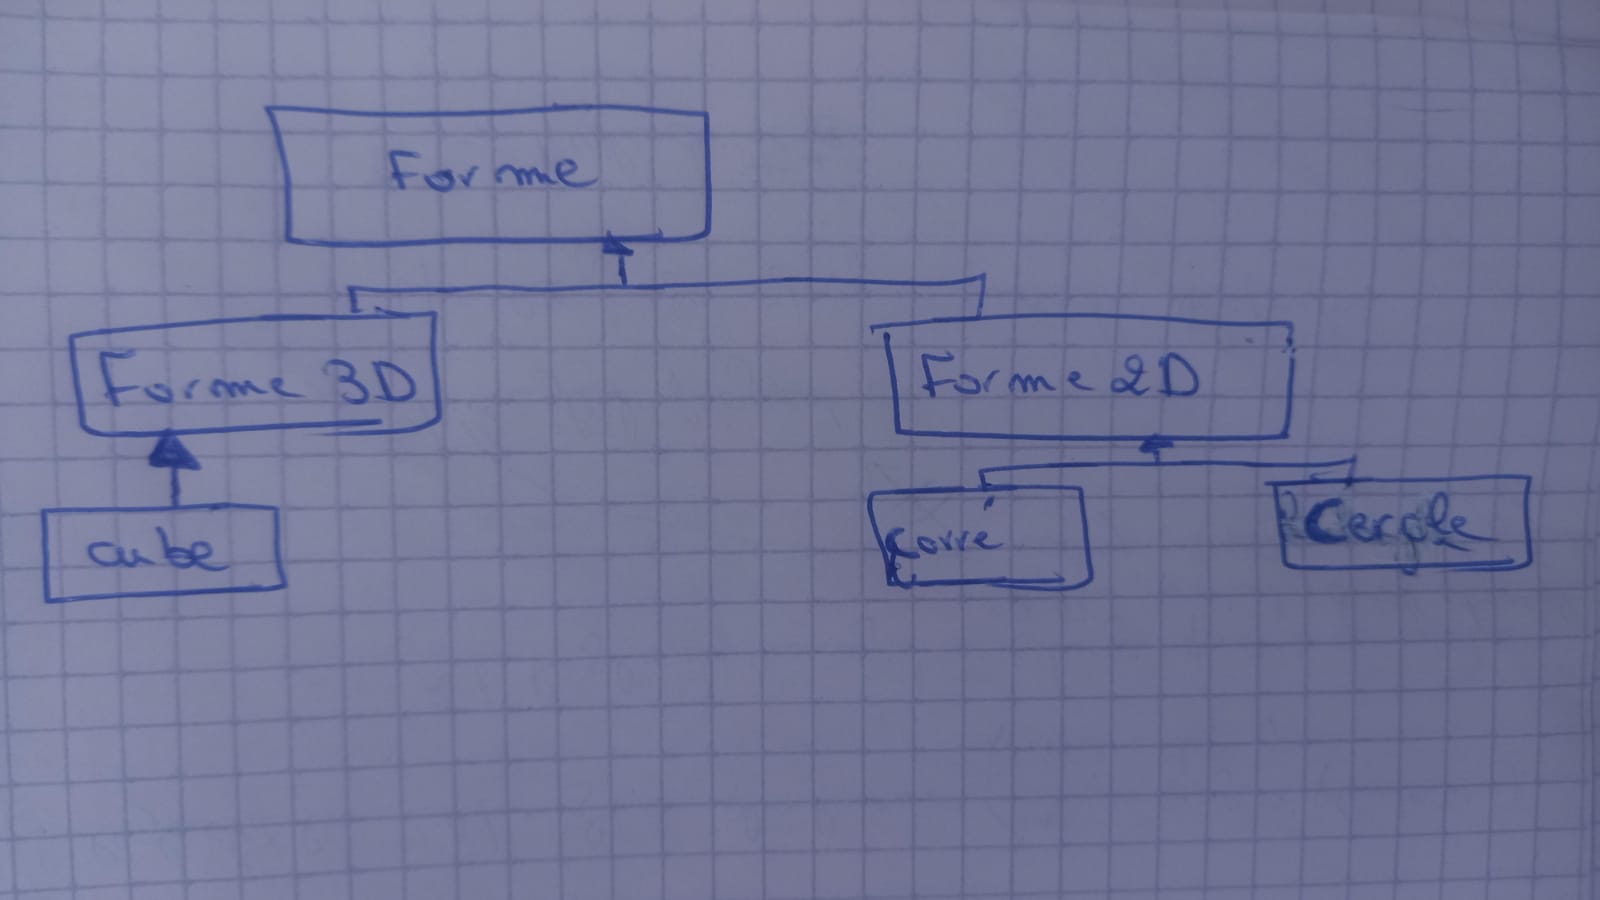 Forme
Forme 3D
Forme 2D
cube
Carré
Cercle